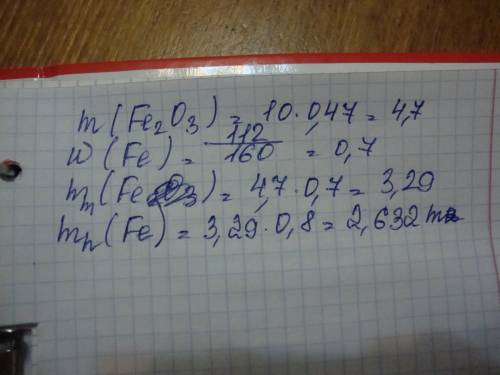 m(Fe₂O₃) = 10·0,47 = 4,7
w(Fe) = 112/160 = 0,7
mₘ(Fe) = 4,7·0,7 = 3,29
mₙ(Fe) = 3,29·0,8 = 2,632